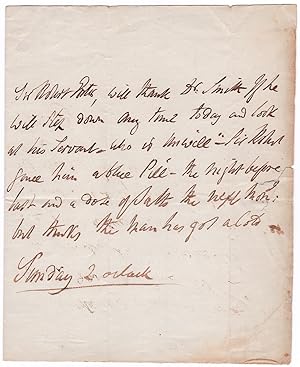 Sir Robert Peel, will thank Dr. Smith if he
will Step down any time today and look
at his Servant - who is unwell - Sir Robert
gave him a blue Pill - the night before
last and a dose of Salts the next Mor:
but thinks the Man has got a Cold
Sunday 2 o'clock